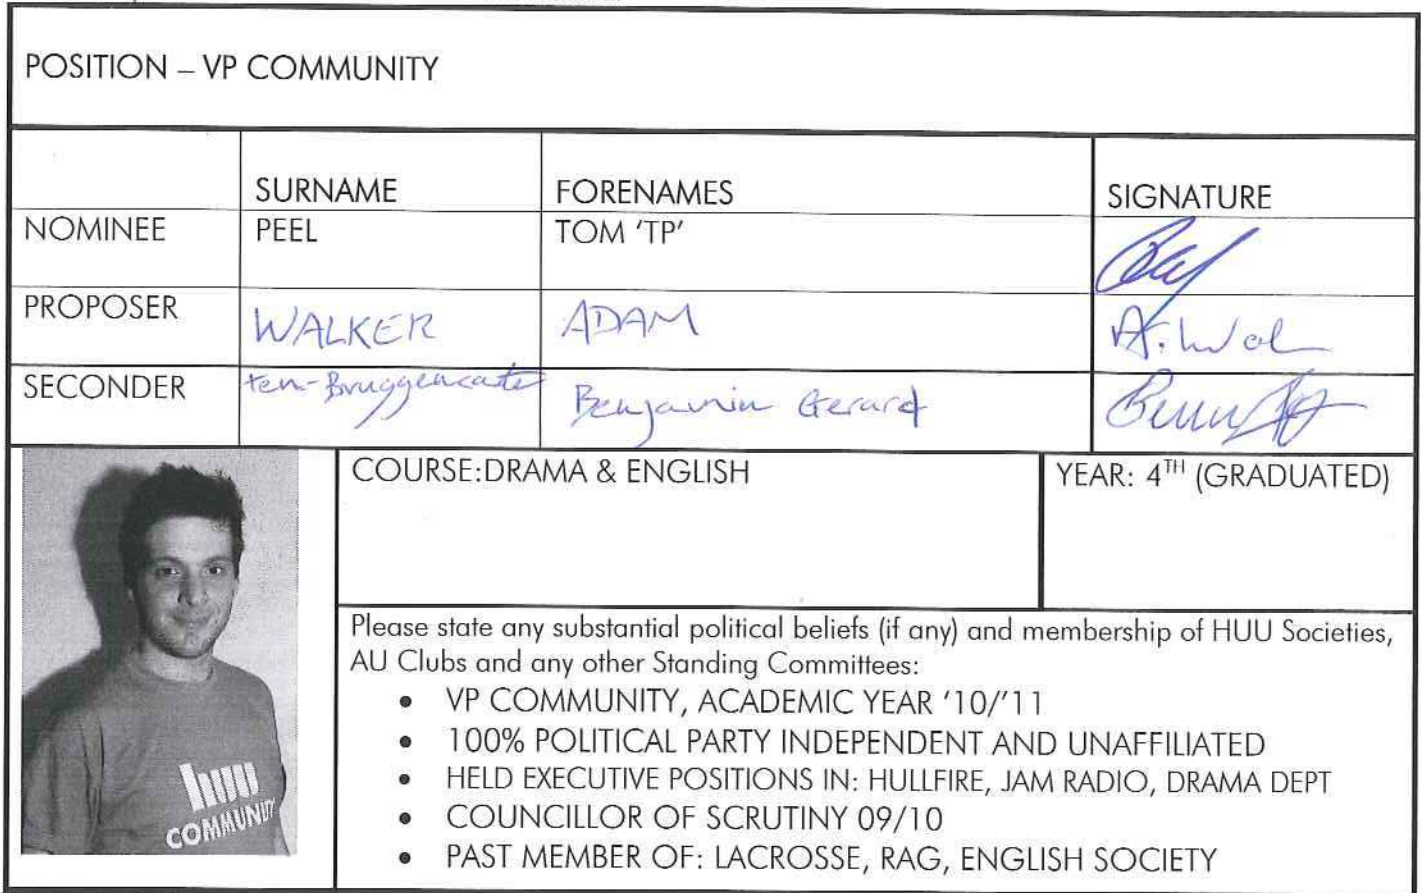 POSITION – VP COMMUNITY
SURNAME FORENAMES SIGNATURE
NOMINEE PEEL TOM 'TP'
PROPOSER WALKER ADAM A. Wal
SECONDER ten-Bruggencate Benjamin Gerard
COURSE:DRAMA & ENGLISH YEAR: 4TH (GRADUATED)
Please state any substantial political beliefs (if any) and membership of HUU Societies,
AU Clubs and any other Standing Committees:
• VP COMMUNITY, ACADEMIC YEAR '10/'11
• 100% POLITICAL PARTY INDEPENDENT AND UNAFFILIATED
• HELD EXECUTIVE POSITIONS IN: HULLFIRE, JAM RADIO, DRAMA DEPT
• COUNCILLOR OF SCRUTINY 09/10
• PAST MEMBER OF: LACROSSE, RAG, ENGLISH SOCIETY
huu
COMMUNITY